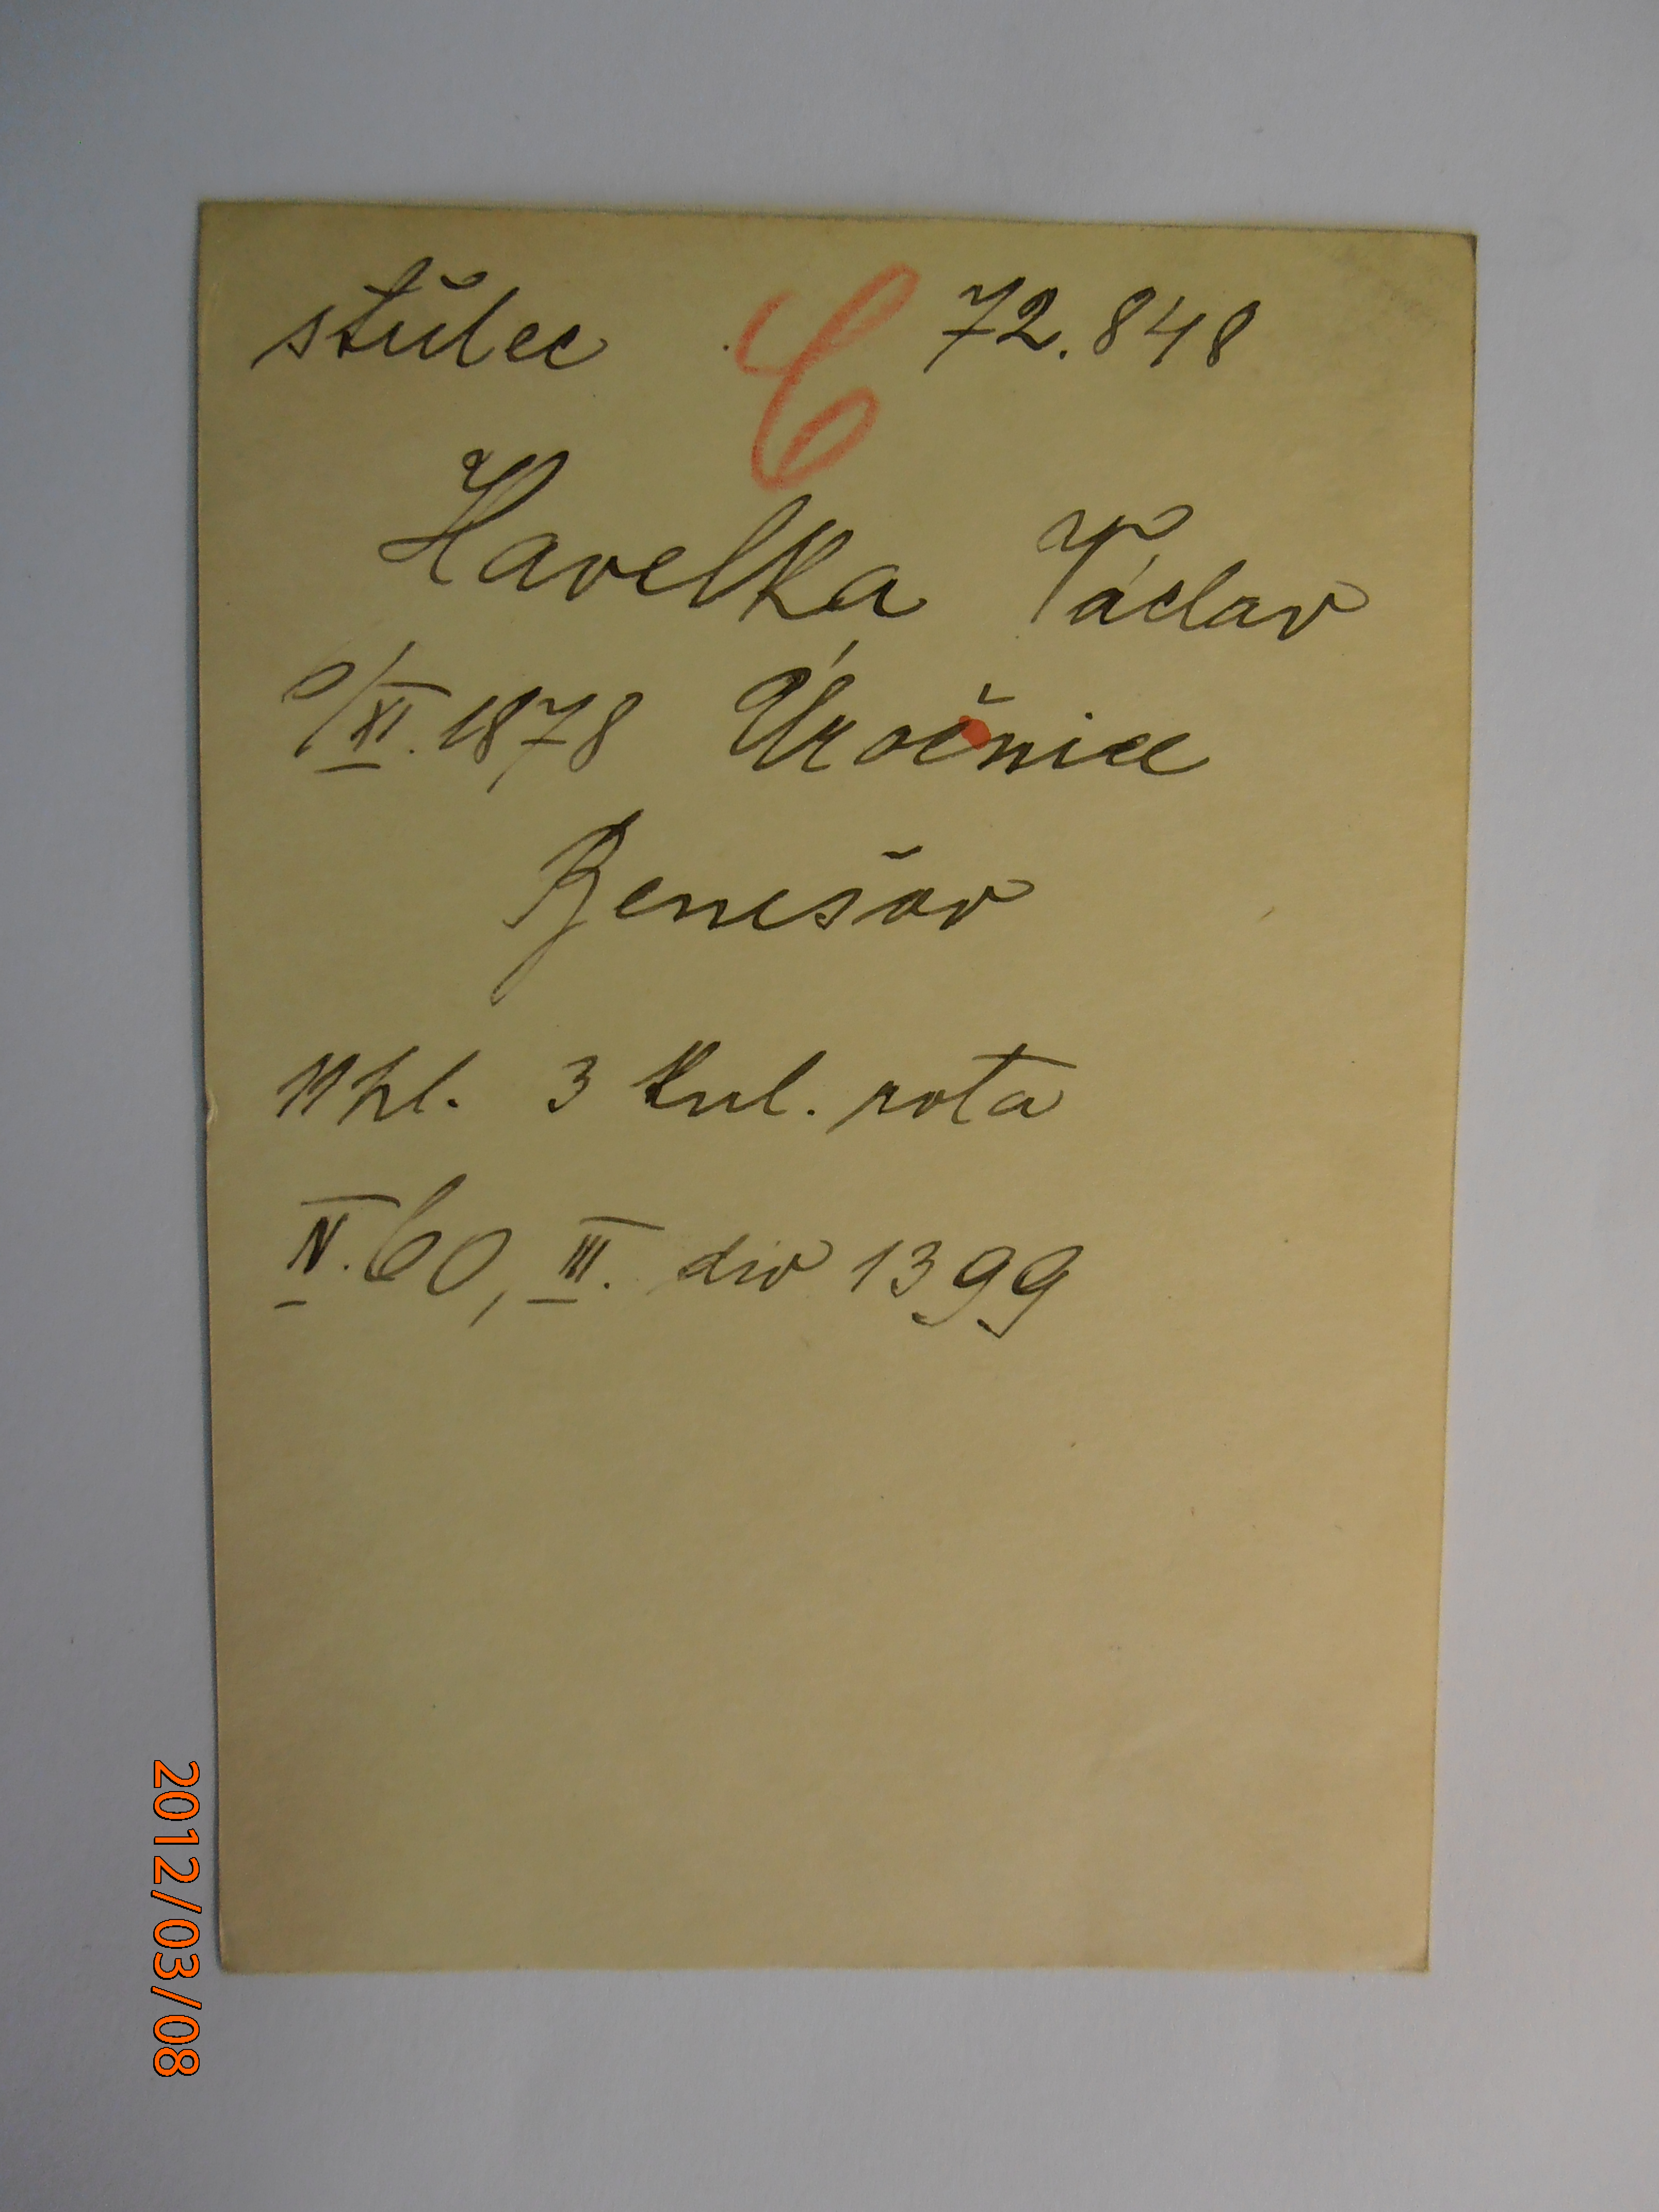 střelec C 72.848
Havelka Václav
9/XI. 1878 Úročnice
Benešov
11 hl. 3 kul. rota
IV. 60, III. div 1399
2012/03/08